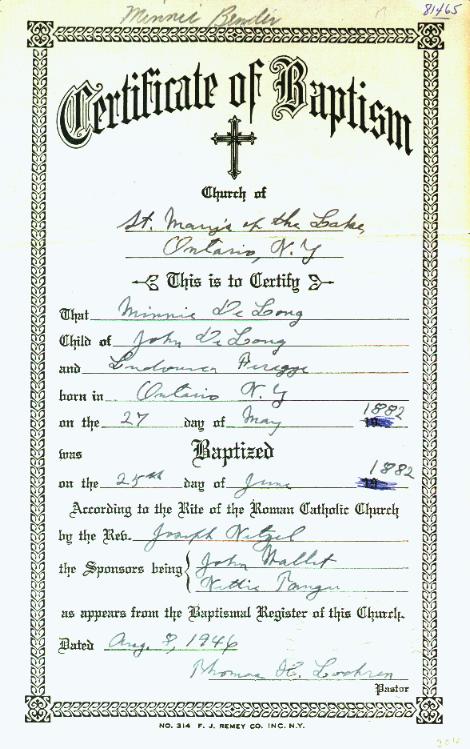 Minnie Bender
81465
Certificate of Baptism
Church of
St. Mary's of the Lake,
Ontario, N.Y
This is to Certify
That Minnie De Long
Child of John De Long
and
born in Ontario N.Y
on the 27 day of May 1882
was Baptized
on the 25th day of June 1882
According to the Rite of the Roman Catholic Church
by the Rev. Joseph Netzel
the Sponsors being John Mallet
Nettie
as appears from the Baptismal Register of this Church.
Dated Aug. 8, 1946
Thomas H.
Pastor
NO. 314 F. J. REMEY CO. INC. N.Y.